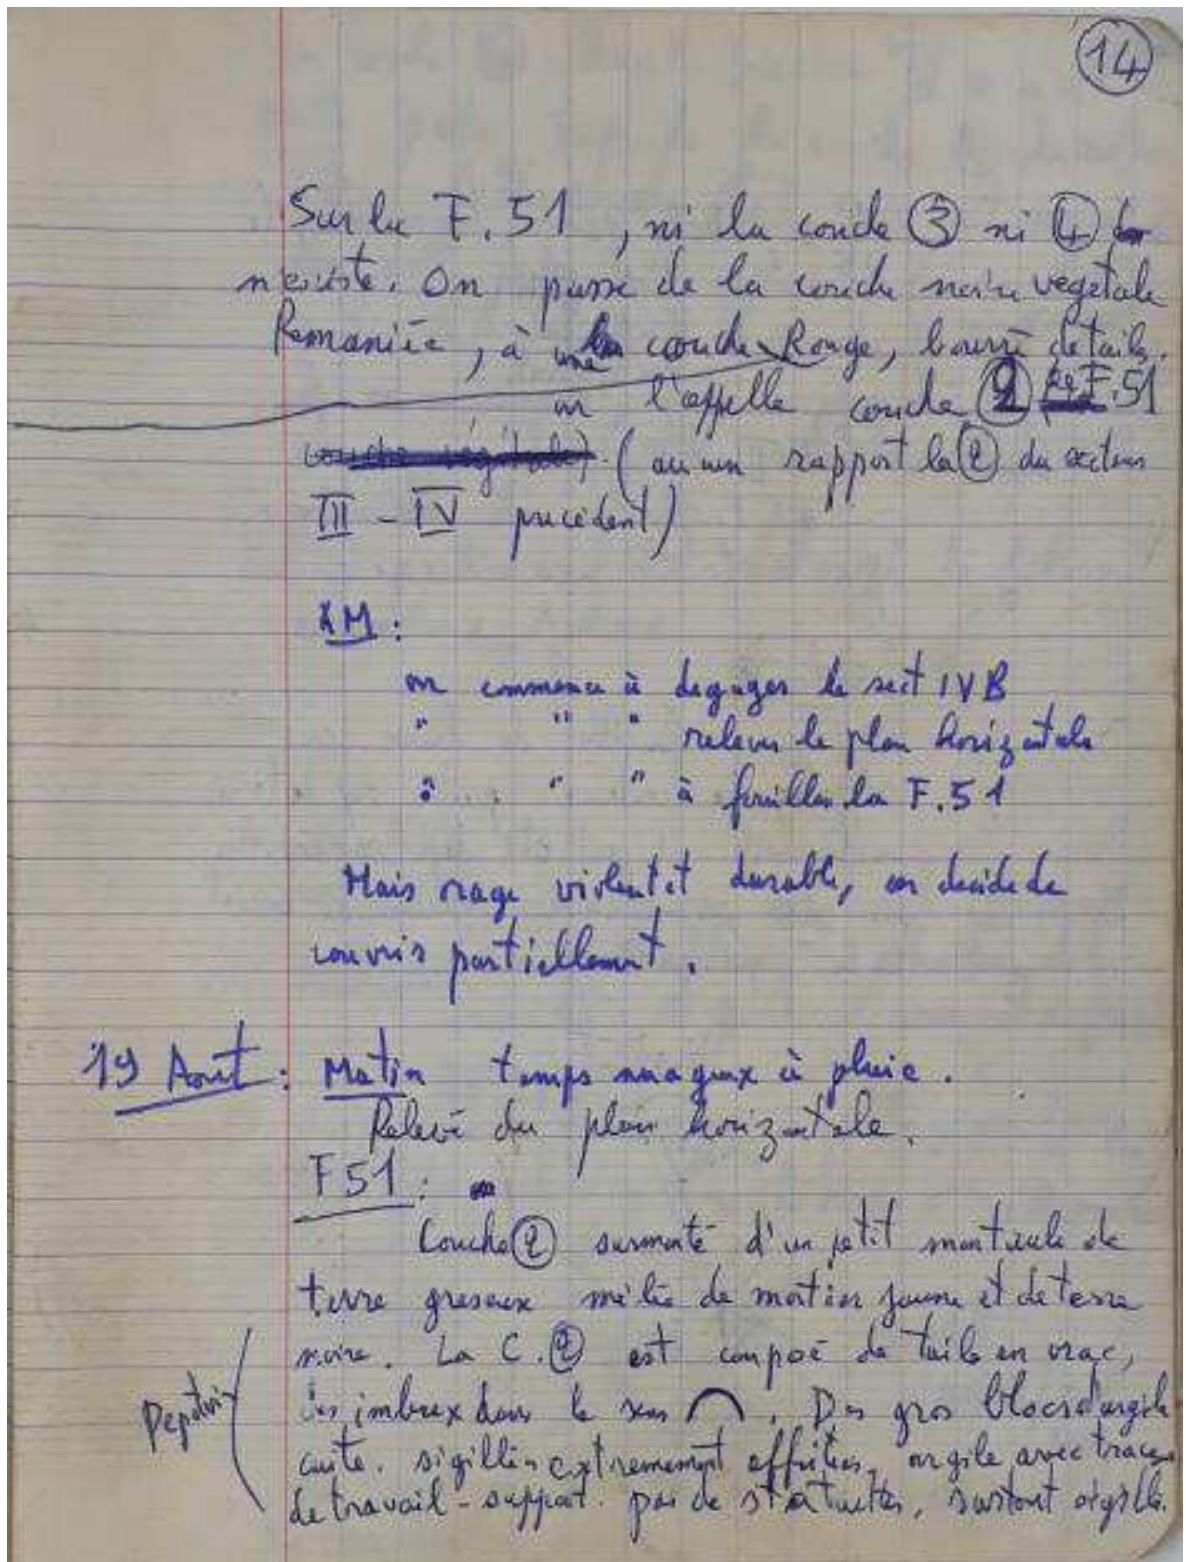 14
Sur la F.51, ni la couche 3 ni 4
n'existe. On passe de la couche noire vegetale
Remaniée, à une couche Rouge, bourré de tuiles.
on l'appelle couche 2 F.51
(aucun rapport la 2 du secteur
III - IV precedent)
AM:
on commence à degager le sect IVB
" " " relever le plan horizontale
" " " à fouiller la F.51
Mais orage violent et durable, on decide de
couvrir partiellement.
19 Aout: Matin temps nuageux à pluie.
Relevé du plan horizontale.
F51:
Couche 2 surmonté d'un petit monticule de
terre greseux mêlée de mortier jaune et de terre
noire. La C.2 est composé de tuiles en vrac,
imbrex dans le sens ⌒. Des gros blocs d'argile
cuite. sigillés extremement effrités, argile avec traces
de travail - support. pas de statuettes, surtout sigillé.
Depotoir